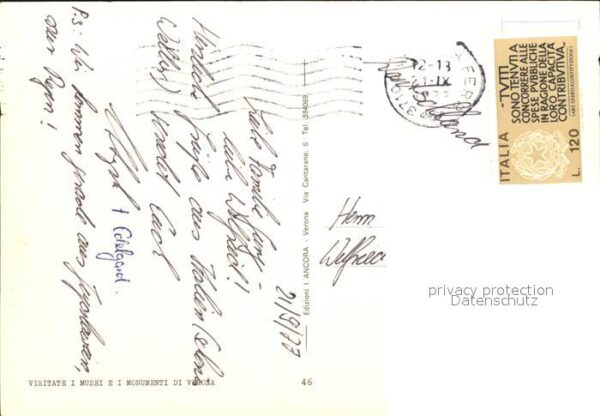 21/9/77
Liebe Familie
lieber Wolfgang!!
Herzliche Grüße aus Italien (schönes
Wetter) sendet Euch
+ Edelgard.
P.S: Wir kommen gerade aus Jugoslawien,
aus Regen!
Herrn
Deutschland
12-13
21.IX
ITALIA
"TUTTI
SONO TENUTI A
CONCORRERE ALLE
SPESE PUBBLICHE
IN RAGIONE DELLA
LORO CAPACITÀ
CONTRIBUTIVA"
L. 120
Edizioni I. ANCORA - Verona Via Cantarane, 6 Tel. 394069
VISITATE I MUSEI E I MONUMENTI DI VERONA
46
privacy protection
Datenschutz